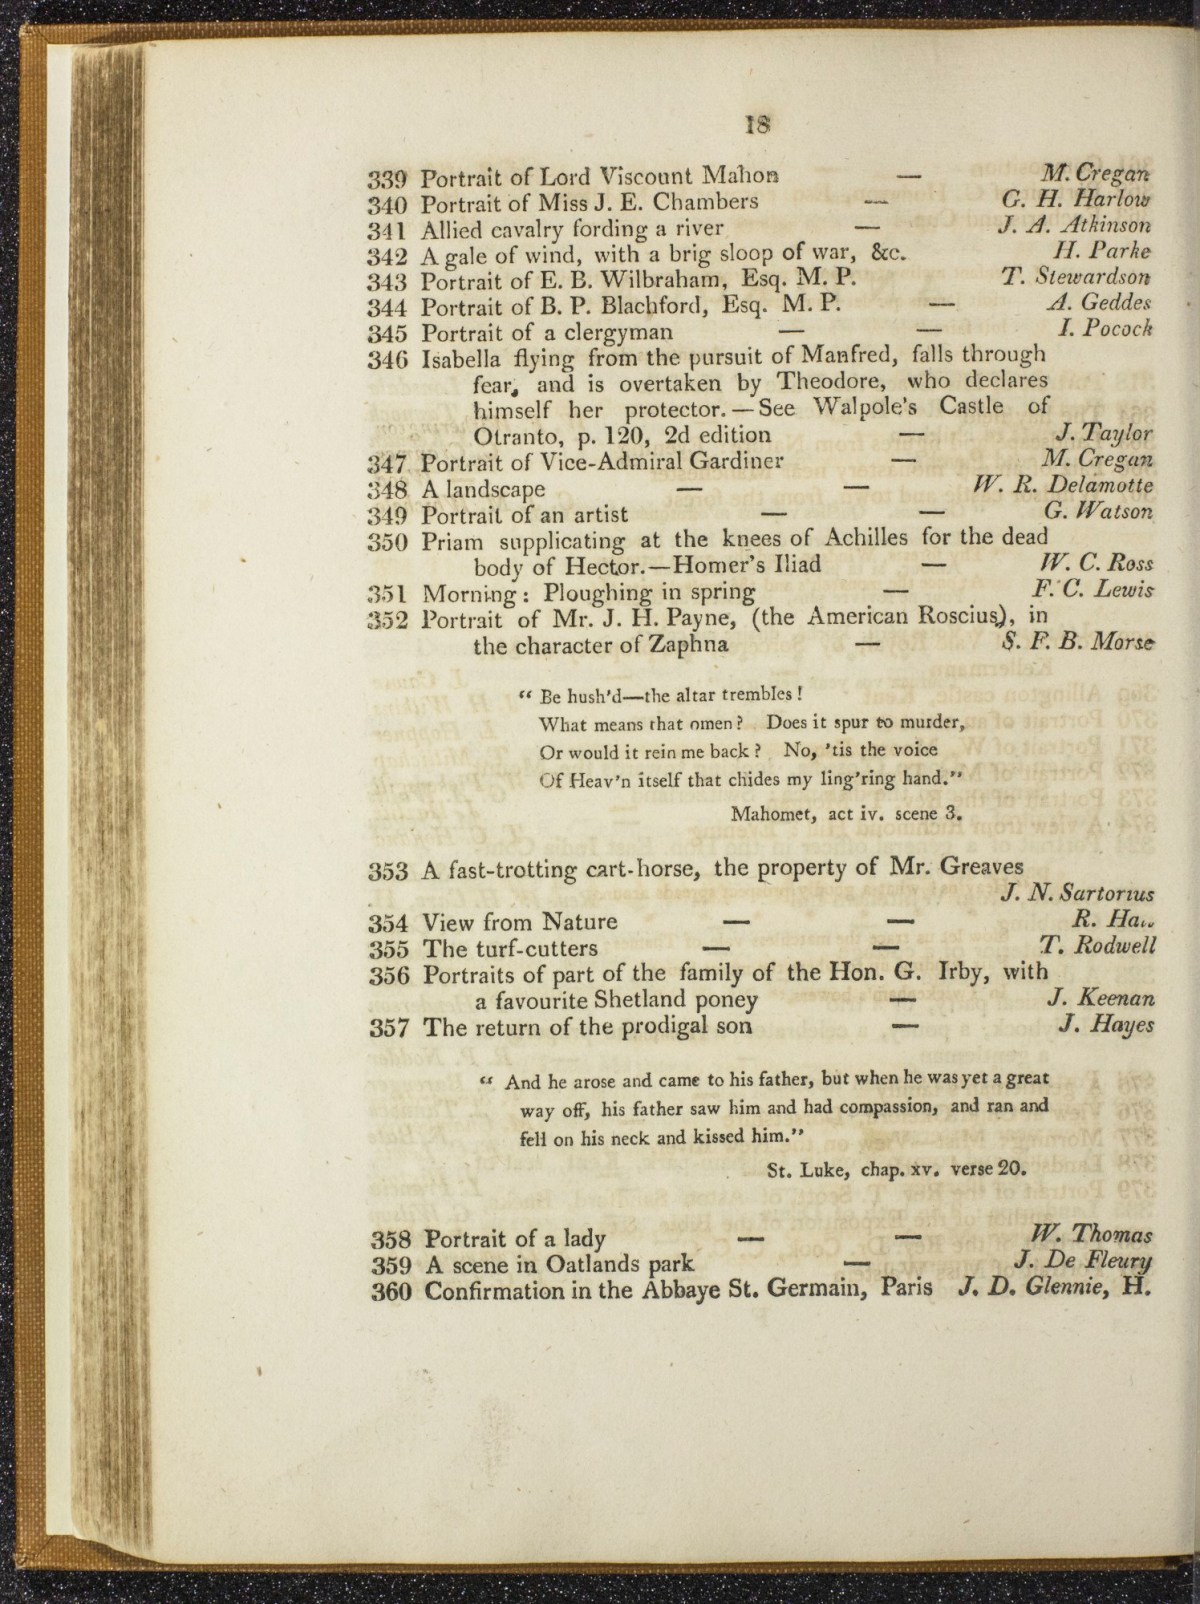 18
339 Portrait of Lord Viscount Mahon — M. Cregan
340 Portrait of Miss J. E. Chambers — G. H. Harlow
341 Allied cavalry fording a river — J. A. Atkinson
342 A gale of wind, with a brig sloop of war, &c. H. Parke
343 Portrait of E. B. Wilbraham, Esq. M. P. T. Stewardson
344 Portrait of B. P. Blachford, Esq. M. P. — A. Geddes
345 Portrait of a clergyman — — I. Pocock
346 Isabella flying from the pursuit of Manfred, falls through
fear, and is overtaken by Theodore, who declares
himself her protector.—See Walpole's Castle of
Otranto, p. 120, 2d edition — J. Taylor
347 Portrait of Vice-Admiral Gardiner — M. Cregan
348 A landscape — — W. R. Delamotte
349 Portrait of an artist — — G. Watson
350 Priam supplicating at the knees of Achilles for the dead
body of Hector.—Homer's Iliad — W. C. Ross
351 Morning: Ploughing in spring — F. C. Lewis
352 Portrait of Mr. J. H. Payne, (the American Roscius,), in
the character of Zaphna — S. F. B. Morse
“ Be hush'd—the altar trembles!
What means that omen? Does it spur to murder,
Or would it rein me back? No, 'tis the voice
Of Heav'n itself that chides my ling'ring hand.”
Mahomet, act iv. scene 3.
353 A fast-trotting cart-horse, the property of Mr. Greaves
J. N. Sartorius
354 View from Nature — — R.
355 The turf-cutters — — T. Rodwell
356 Portraits of part of the family of the Hon. G. Irby, with
a favourite Shetland poney — J. Keenan
357 The return of the prodigal son — J. Hayes
“ And he arose and came to his father, but when he was yet a great
way off, his father saw him and had compassion, and ran and
fell on his neck and kissed him.”
St. Luke, chap. xv. verse 20.
358 Portrait of a lady — — W. Thomas
359 A scene in Oatlands park — J. De Fleury
360 Confirmation in the Abbaye St. Germain, Paris J. D. Glennie, H.